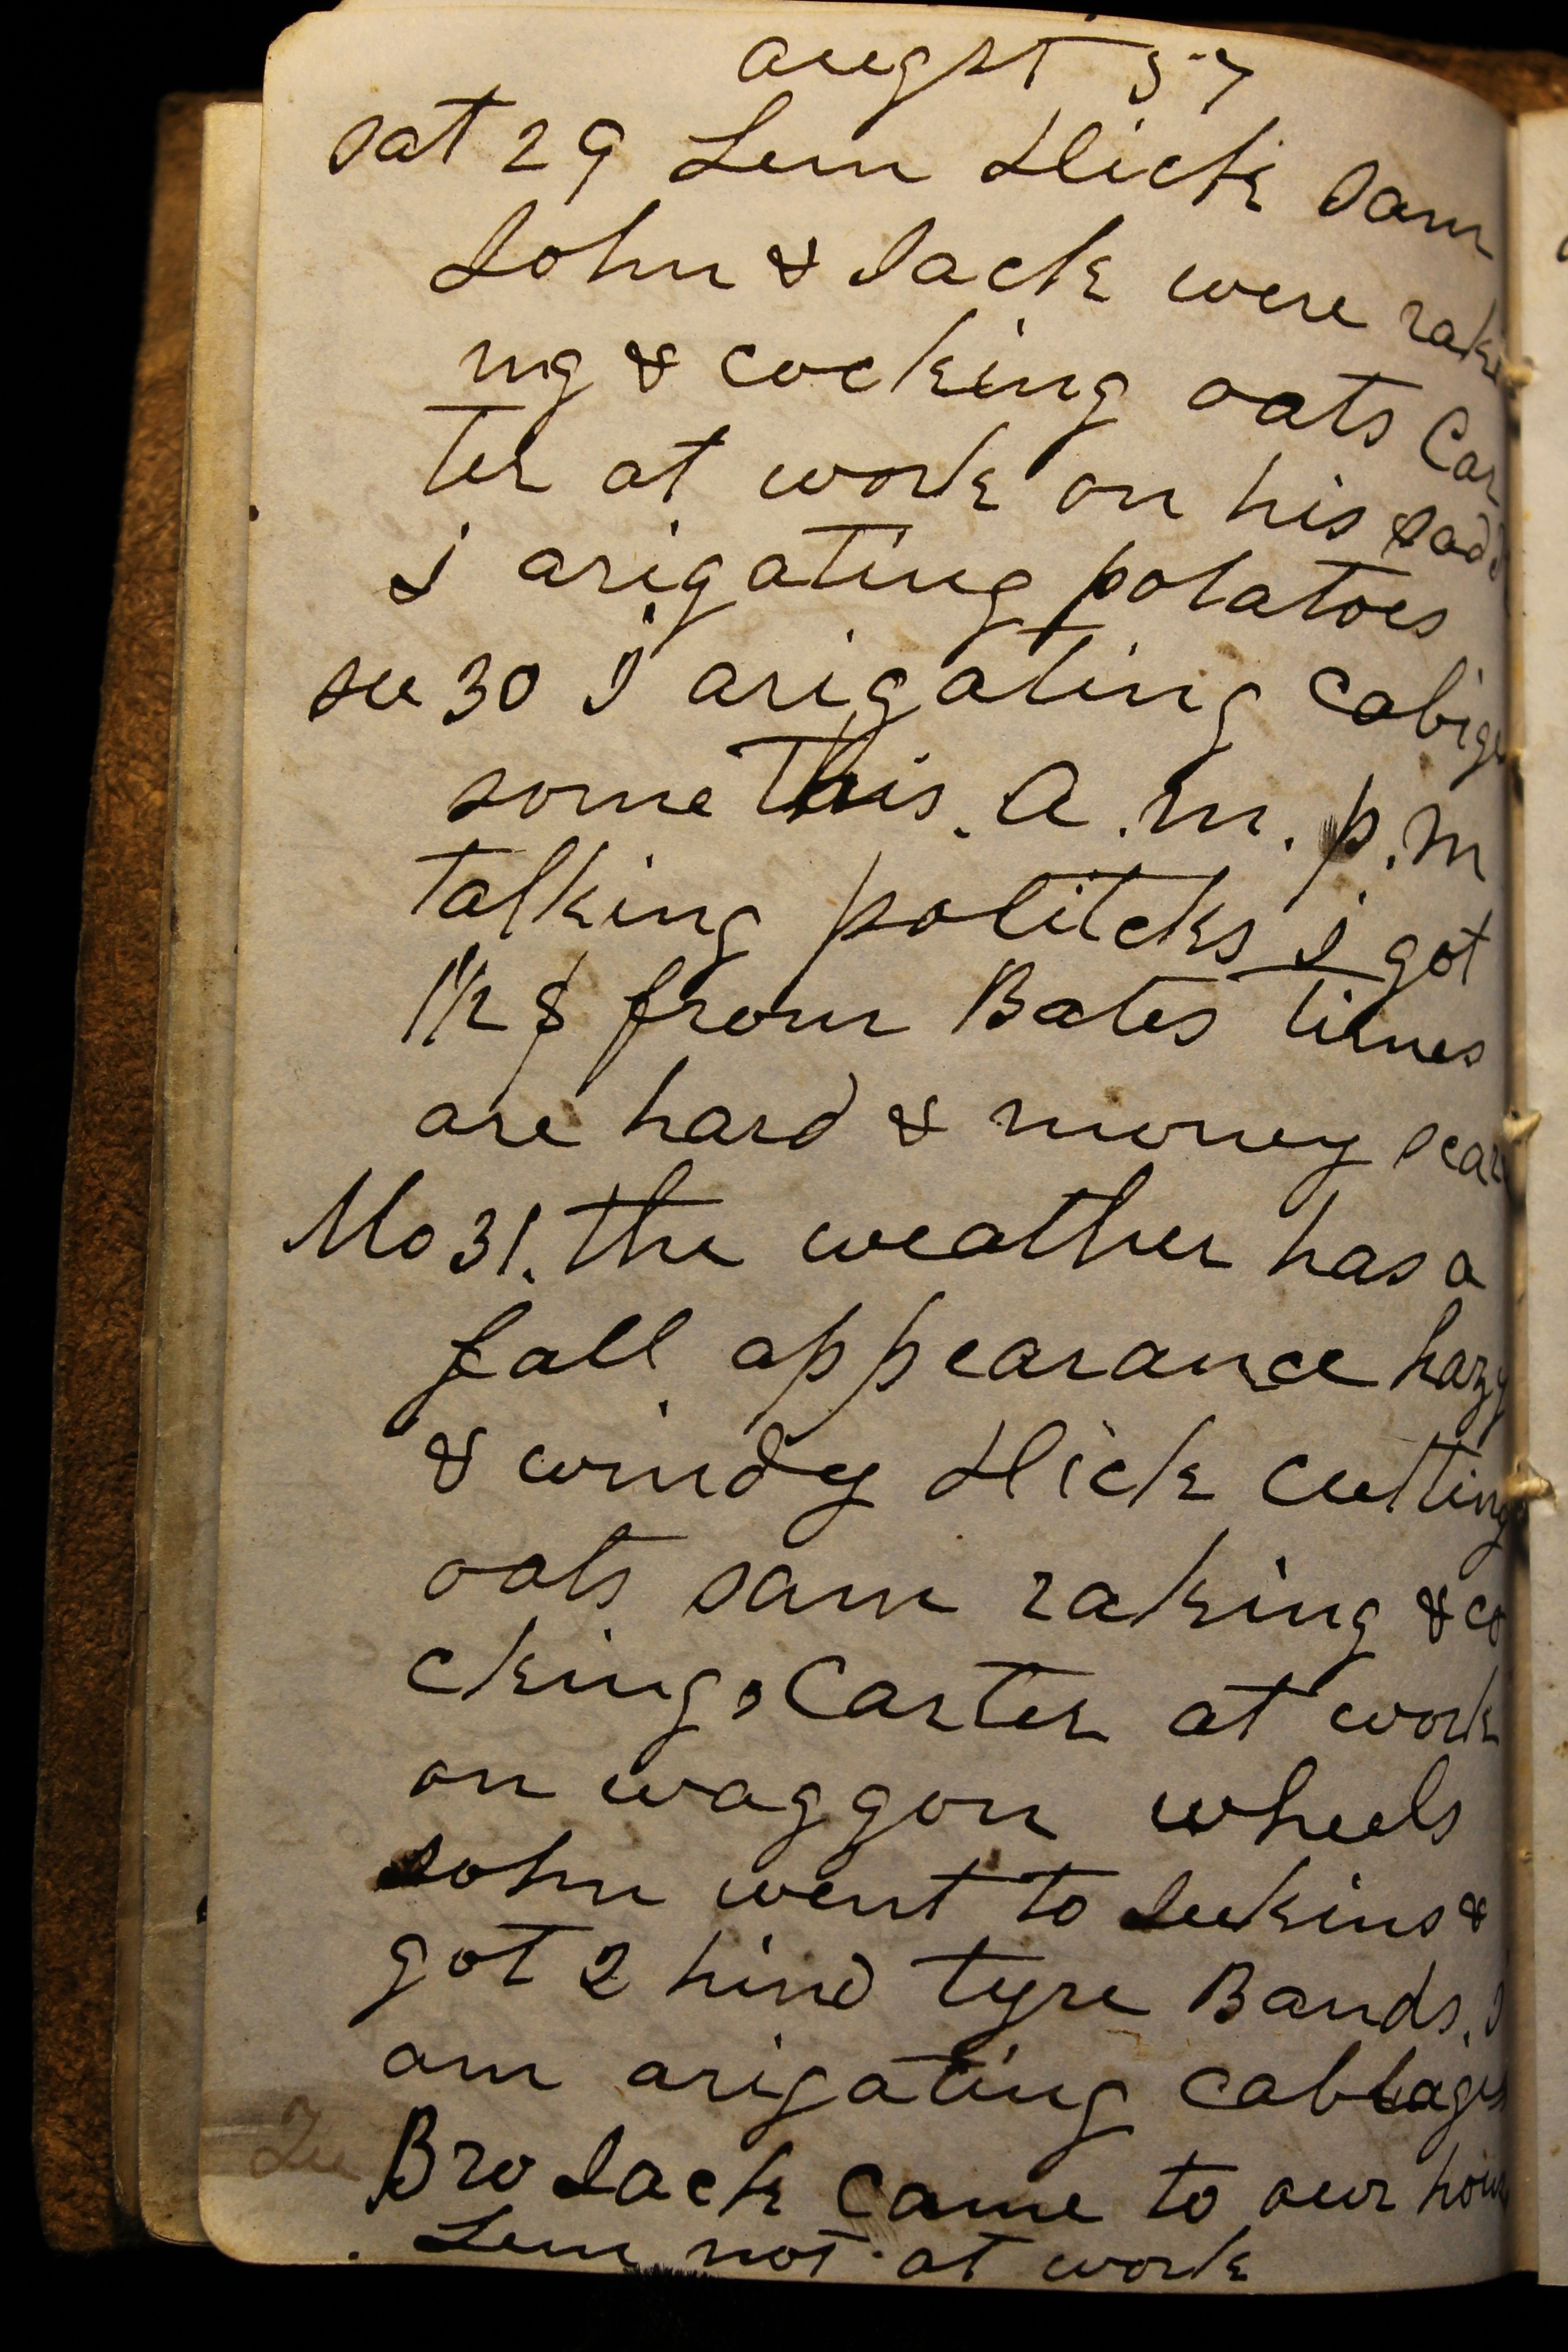 augst 57
sat 29 Lem Hick sam
John & Jack were raki
ng & cocking oats Car
ter at work on his sadd
I arigating potatoes
su 30 I arigating cabige
some this. A.m. p.m
talking politcks I got
1 1/2 $ from Bates times
are hard & money scar
Mo 31. the weather has a
fall appearance hazy
& windy Hick cutting
oats sam raking & co
cking, Carter at work
on waggon wheels
John went to Jenkins &
got 2 hind tyre Bands. I
am arigating cabbages
Bro Jack came to our hous
Lem not at work